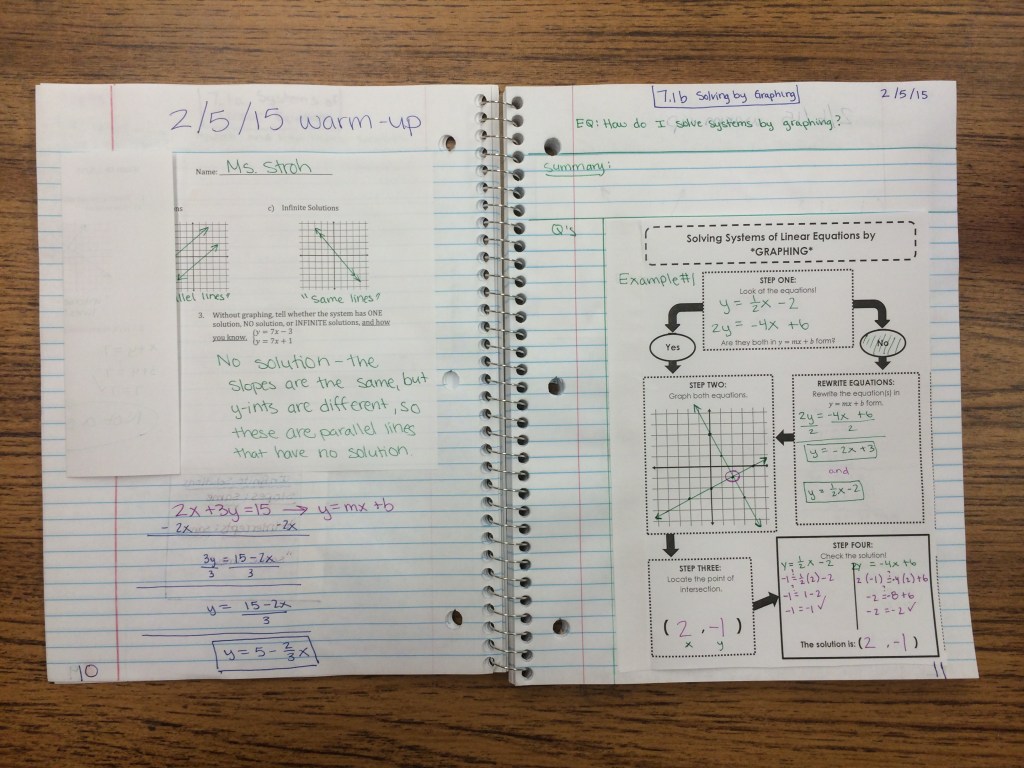 2/5/15 warm-up
Name: Ms. Stroh
c) Infinite Solutions
"Same lines"
3. Without graphing, tell whether the system has ONE
solution, NO solution, or INFINITE solutions, and how
you know. { y = 7x – 3
y = 7x + 1
No solution – the
slopes are the same, but
y-ints are different, so
these are parallel lines
that have no solution.
2x + 3y = 15 → y = mx + b
- 2x -2x
3y = 15 - 2x
3 3
y = 15 - 2x
3
y = 5 - 2/3 x
10
7.1b Solving by Graphing
2/5/15
EQ: How do I solve systems by graphing?
Summary:
Q's
Solving Systems of Linear Equations by
*GRAPHING*
Example #1
STEP ONE:
Look at the equations!
y = 1/2 x - 2
2y = -4x + 6
Are they both in y = mx + b form?
Yes
No
STEP TWO:
Graph both equations.
REWRITE EQUATIONS:
Rewrite the equation(s) in
y = mx + b form.
2y = -4x + 6
2 2
y = -2x + 3
and
y = 1/2 x - 2
STEP THREE:
Locate the point of
intersection.
( 2 , -1 )
x y
STEP FOUR:
Check the solution!
y = 1/2 x - 2
-1 ≟ 1/2 (2) - 2
-1 ≟ 1 - 2
-1 = -1 ✓
2y = -4x + 6
2(-1) ≟ -4(2) + 6
-2 ≟ -8 + 6
-2 = -2 ✓
The solution is: ( 2 , -1 )
11